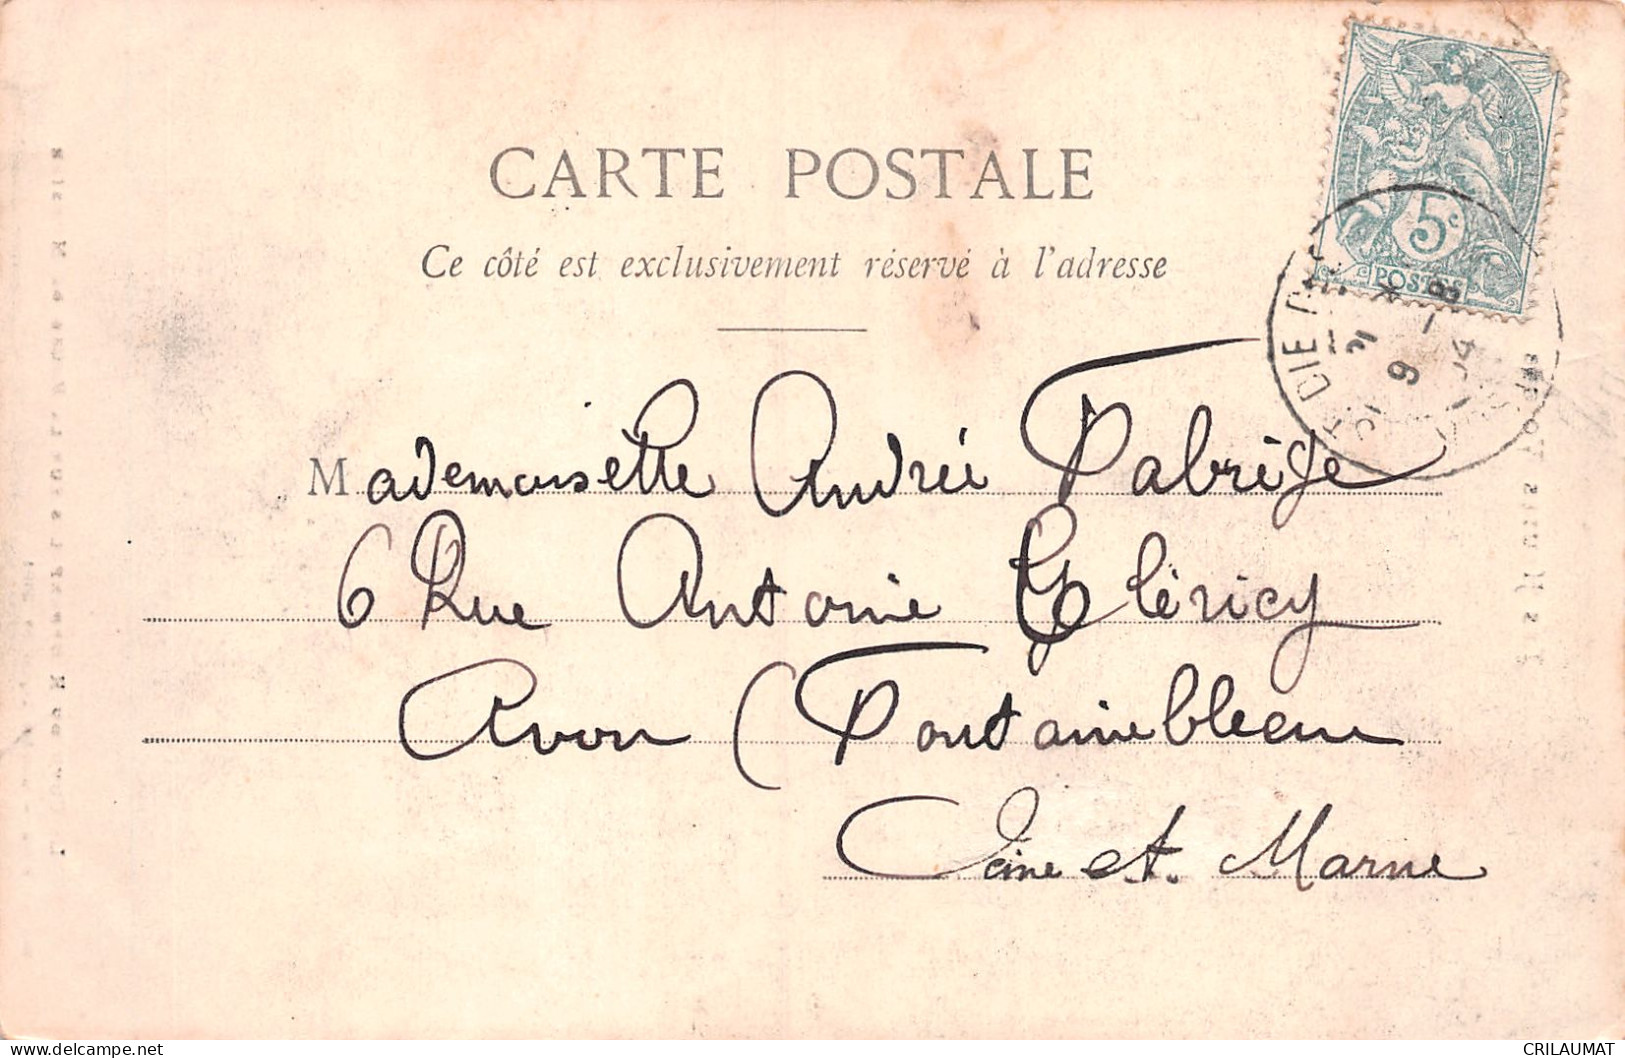 CARTE POSTALE
Ce côté est exclusivement réservé à l'adresse
5c
POSTES
Mademoiselle Andrée Fabrège
6 Rue Antoine Cléricy
Avon (Fontainebleau
Seine et Marne
delcampe.net
CRILAUMAT